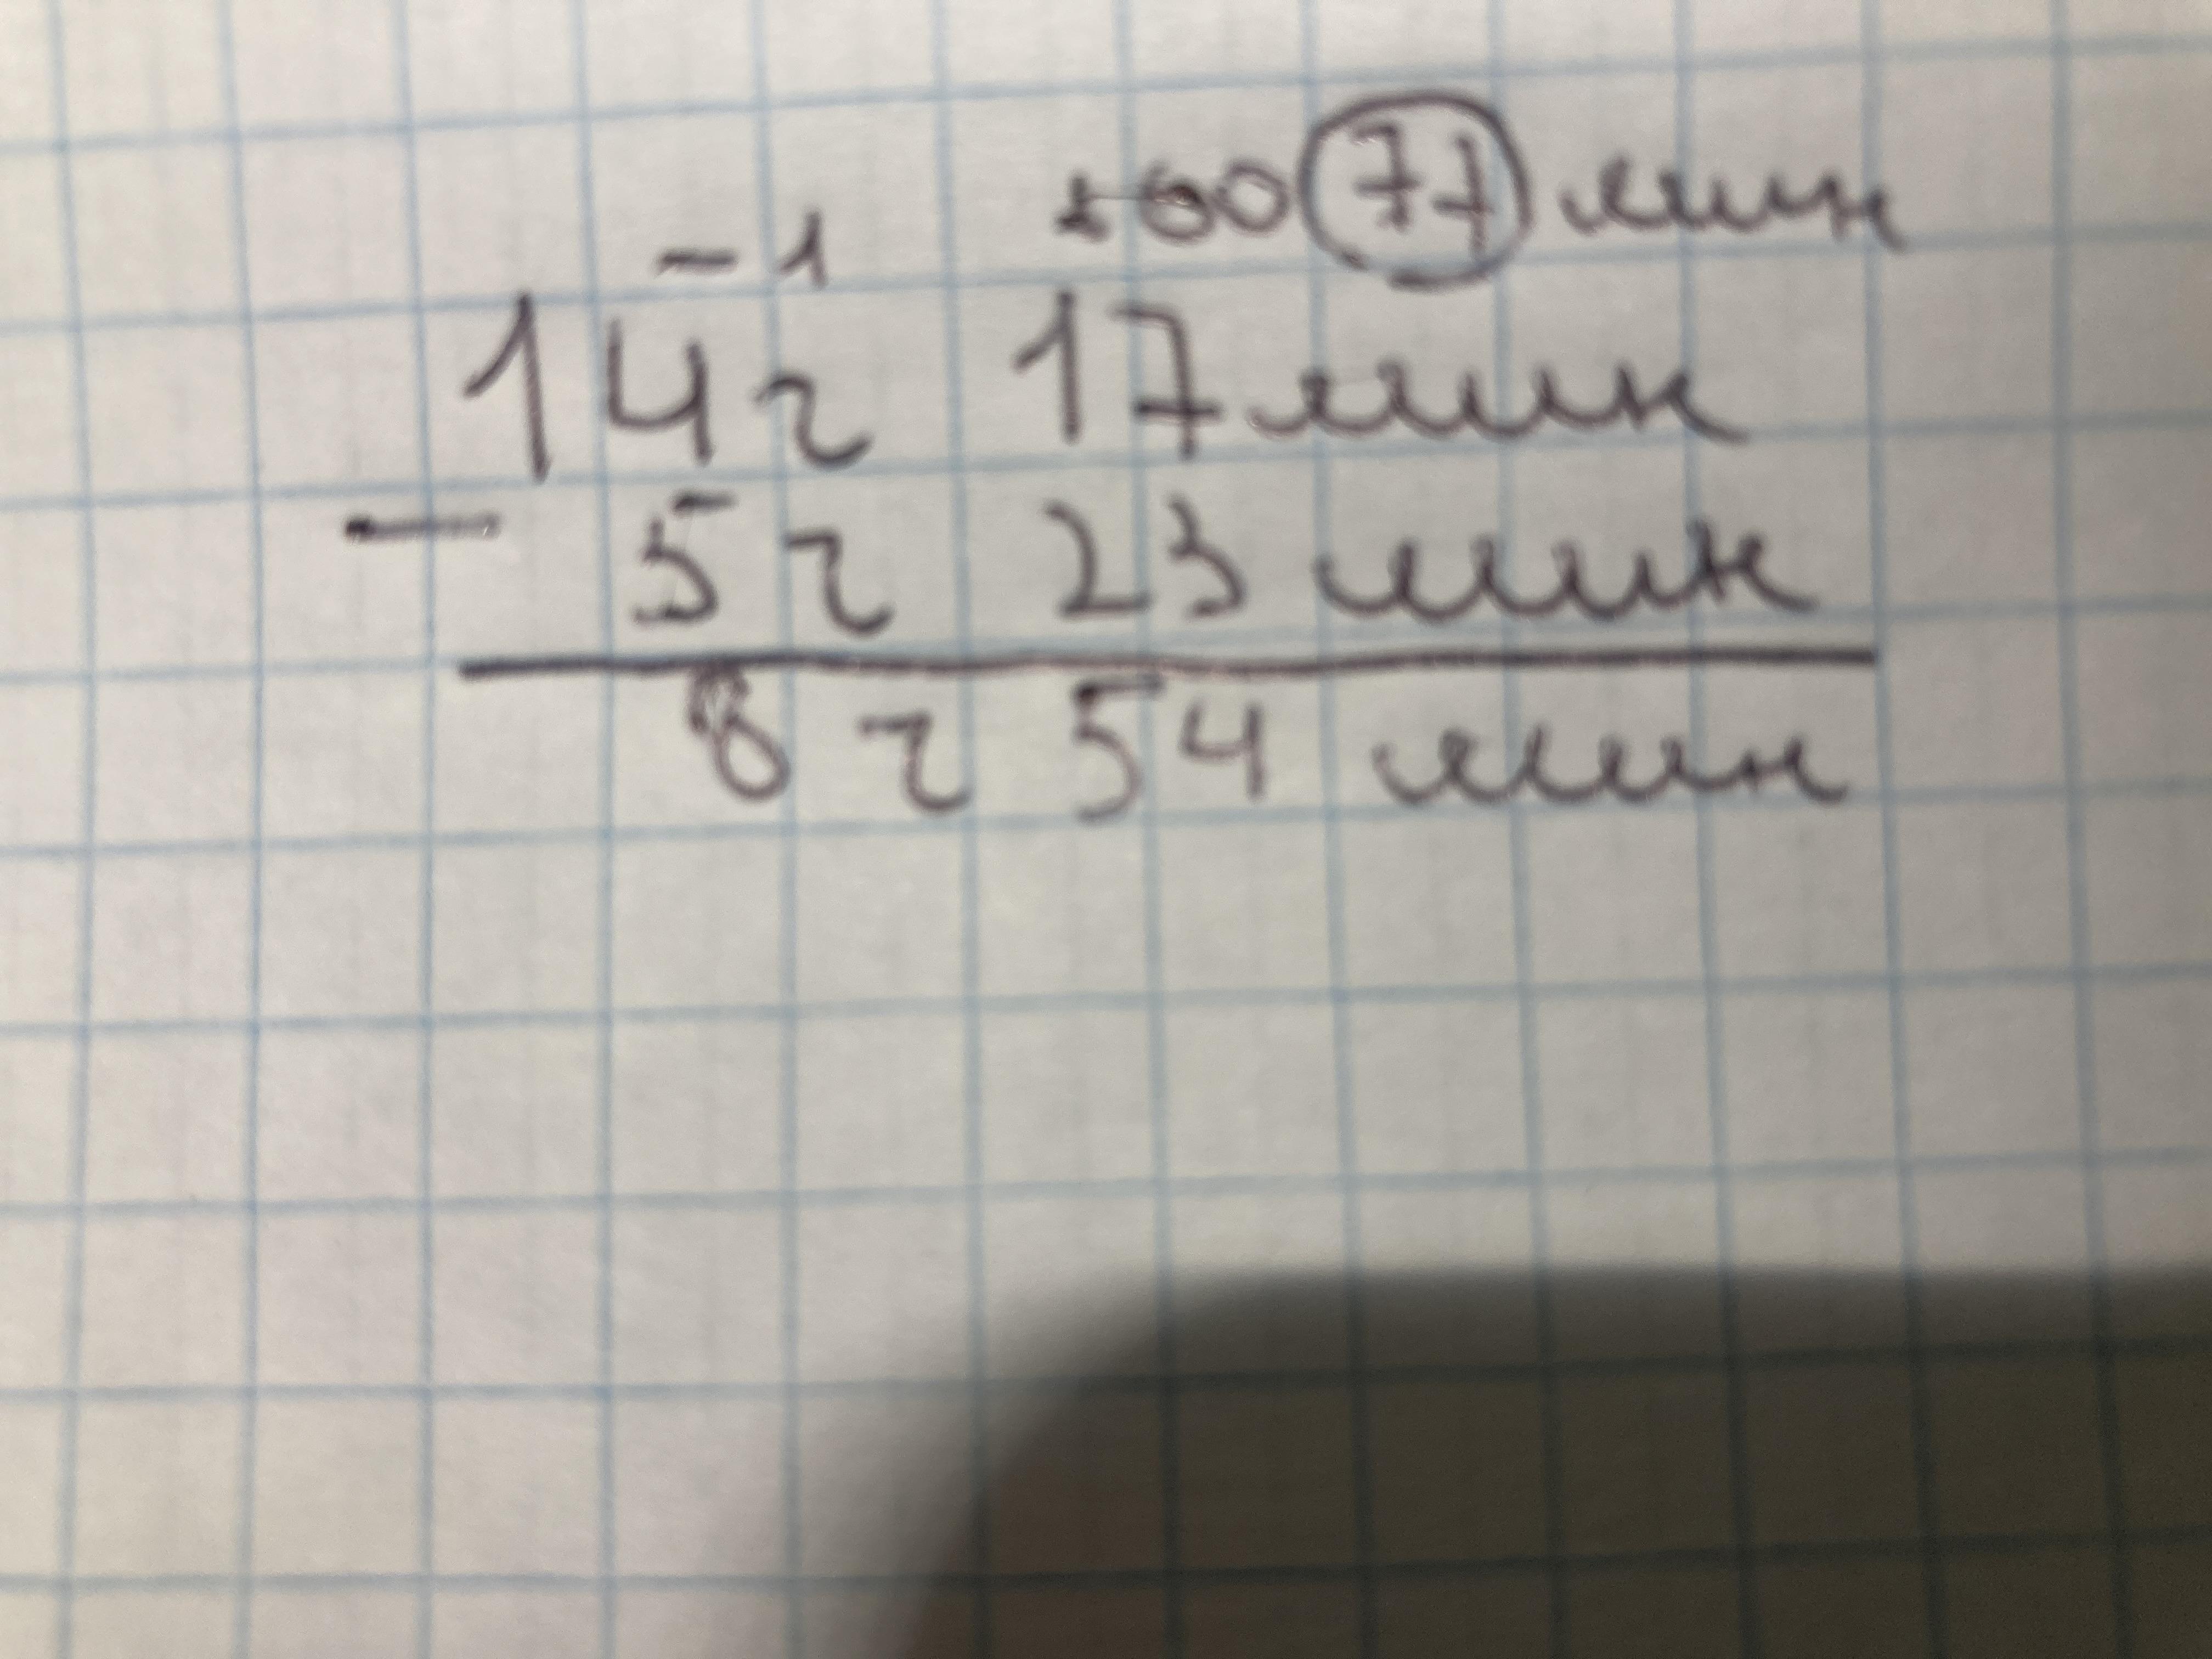 +60 77 мин
-1
14ч 17мин
- 5ч 23 мин
8 ч 54 мин